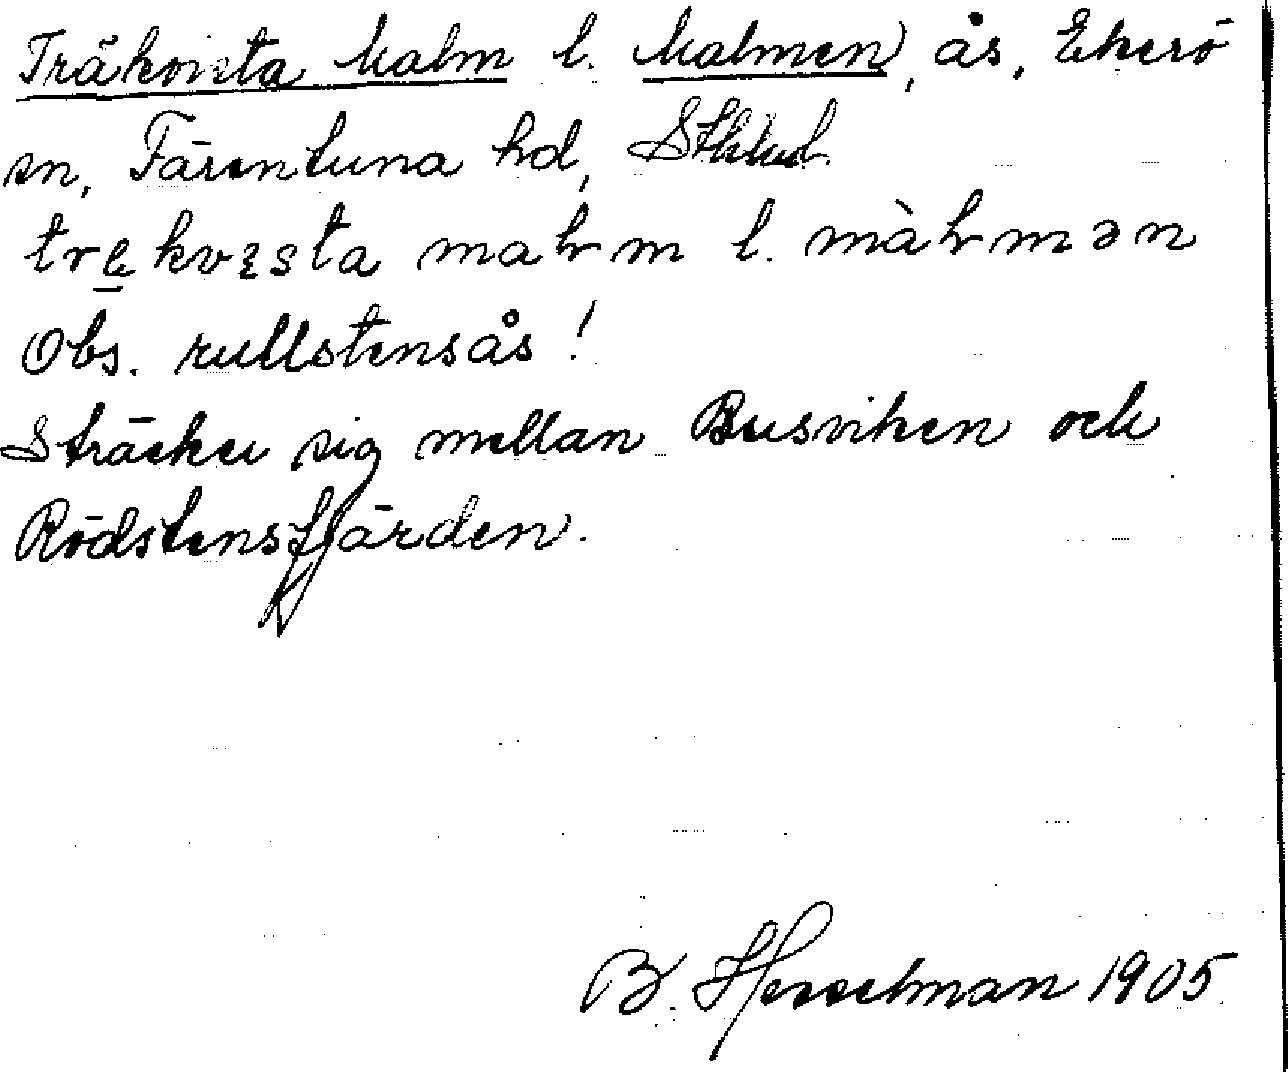 Träkvista malm l. Malmen, ås, Ekerö
sn, Färentuna hd, Sthlms l.
trękvɪsta malm l. màlmən
Obs. rullstensås!
Sträcker sig mellan Busviken och
Rödstensfjärden.
B. Hesselman 1905